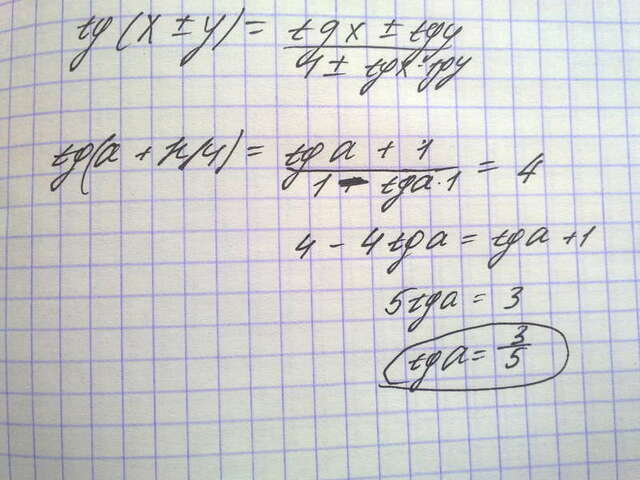 tg(x ± y) = (tgx ± tgy)/(1 ± tgx·tgy)
tg(a + π/4) = (tga + 1)/(1 - tga·1) = 4
4 - 4tga = tga + 1
5tga = 3
tga = 3/5